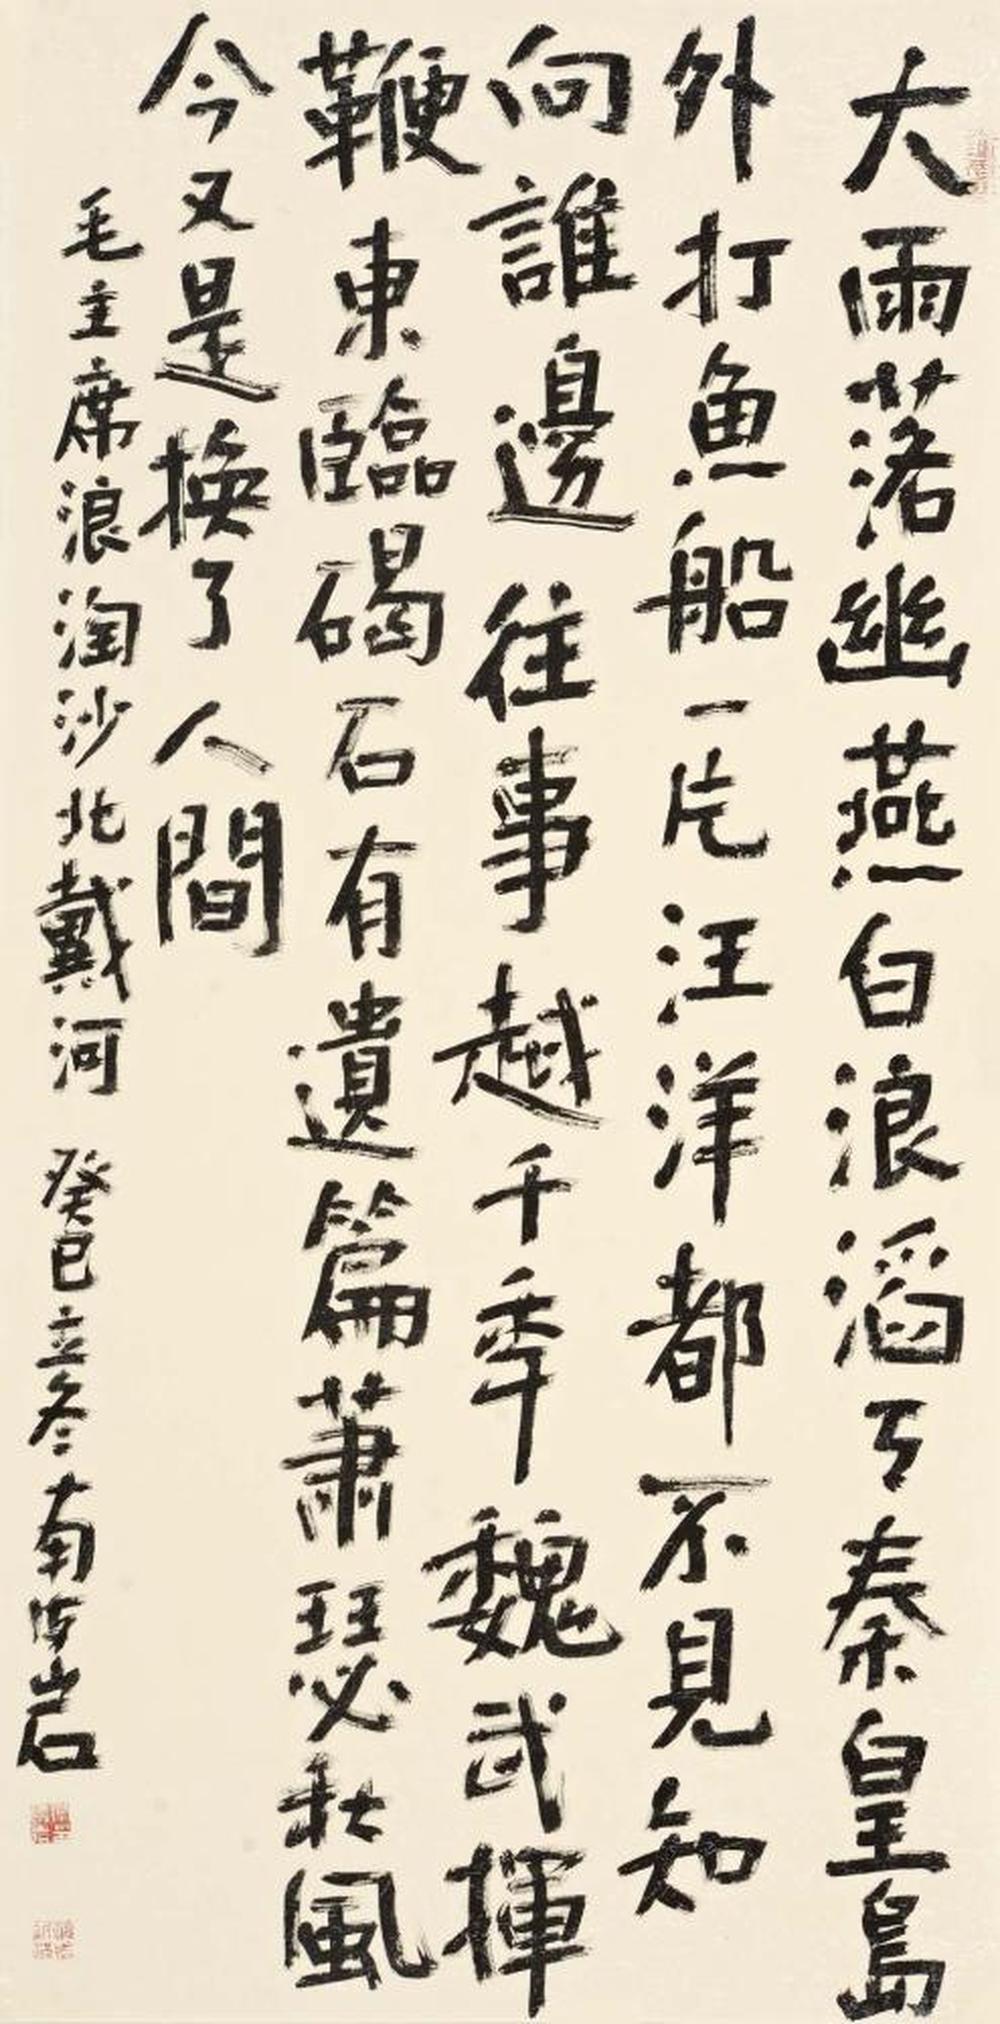 大雨落幽燕白浪滔丂秦皇島
外打魚船一片汪洋都不見知
向誰邊往事越千年魏武揮
鞭東臨碣石有遺篇蕭瑟秋風
今又是換了人間
毛主席浪淘沙北戴河 癸巳立冬南海岩